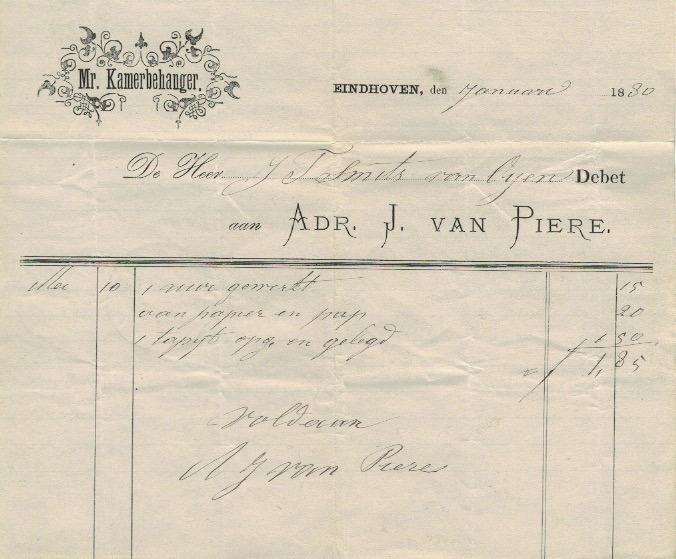 Mr. Kamerbehanger.
EINDHOVEN, den Januari 1880
De Heer J T Smits van Oyen Debet
aan ADR. J. VAN PIERE.
Mei 10 1 uur gewerkt 15
aan papier en pap 20
1 tapijt opg. en gelegd 1 50
ƒ 1,85
Voldaan
A J van Piere